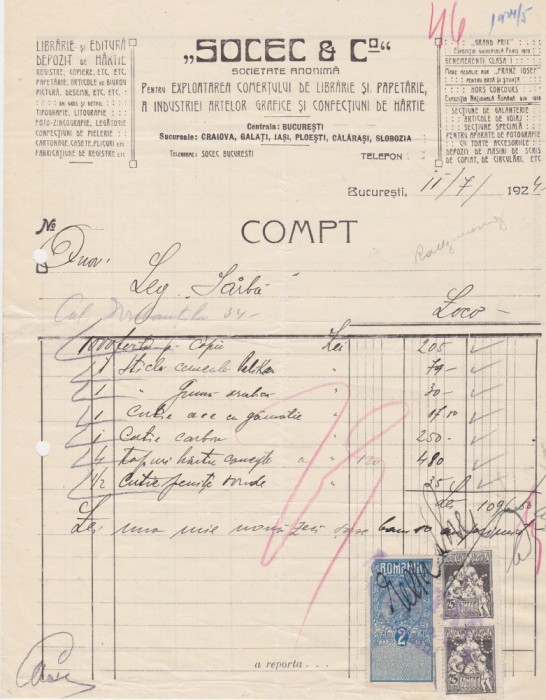 46
1924/5
LIBRĂRIE ȘI EDITURĂ
DEPOZIT DE HÂRTIE
REGISTRE, COPIERE, ETC, ETC,
PAPETĂRIE, ARTICOLE DE BIUROU
PICTURĂ, DESEMN, ETC, ETC.
EN GROS ȘI DETAIL
TIPOGRAFIE, LITOGRAFIE
FOTO-ZINCOGRAFIE, LEGĂTORIE
CONFECȚIUNI DE PIELERIE
CARTONAGE, CASETE, PLICURI ETC
FABRICAȚIUNE DE REGISTRE ETC
„SOCEC & Co"
SOCIETATE ANONIMĂ
PENTRU EXPLOATAREA COMERȚULUI DE LIBRĂRIE ȘI PAPETĂRIE,
A INDUSTRIEI ARTELOR GRAFICE ȘI CONFECȚIUNI DE HÂRTIE
Centrala: BUCUREȘTI
Sucursale: CRAIOVA, GALAȚI, IAȘI, PLOEȘTI, CĂLĂRAȘI, SLOBOZIA
TELEGRAME: SOCEC BUCUREȘTI
TELEFON
„GRAND PRIX"
BENEMERENTI CLASA I
HORS CONCOURS
SECȚIUNE DE GALANTERIE
ARTICOLE DE VOIAJ
SECȚIUNE SPECIALĂ
PENTRU APARATE DE FOTOGRAFIE
CU TOATE ACCESORIILE
DEPOZIT DE MAȘINI DE SCRIS
DE COPIAT, DE CIRCULĂRI, ETC
București, 11/7/1924
No
COMPT
Dnov.
Leg. „Sârbă"
Loco
34-
1000 copii Lei 205
1 Sticlă Pelikan " 79-
1 " " 30-
1 Cutie ace cu gămălie " 17.50
1 Cutie carbon " 250-
4 hârtie a " 120 480
1/2 Cutie penițe " 35
Lei 1096.50
Lei una mie nouă zeci șase bani 50
ROMANIA
2
25
ROMANIA
25
ROMANIA
a reporta